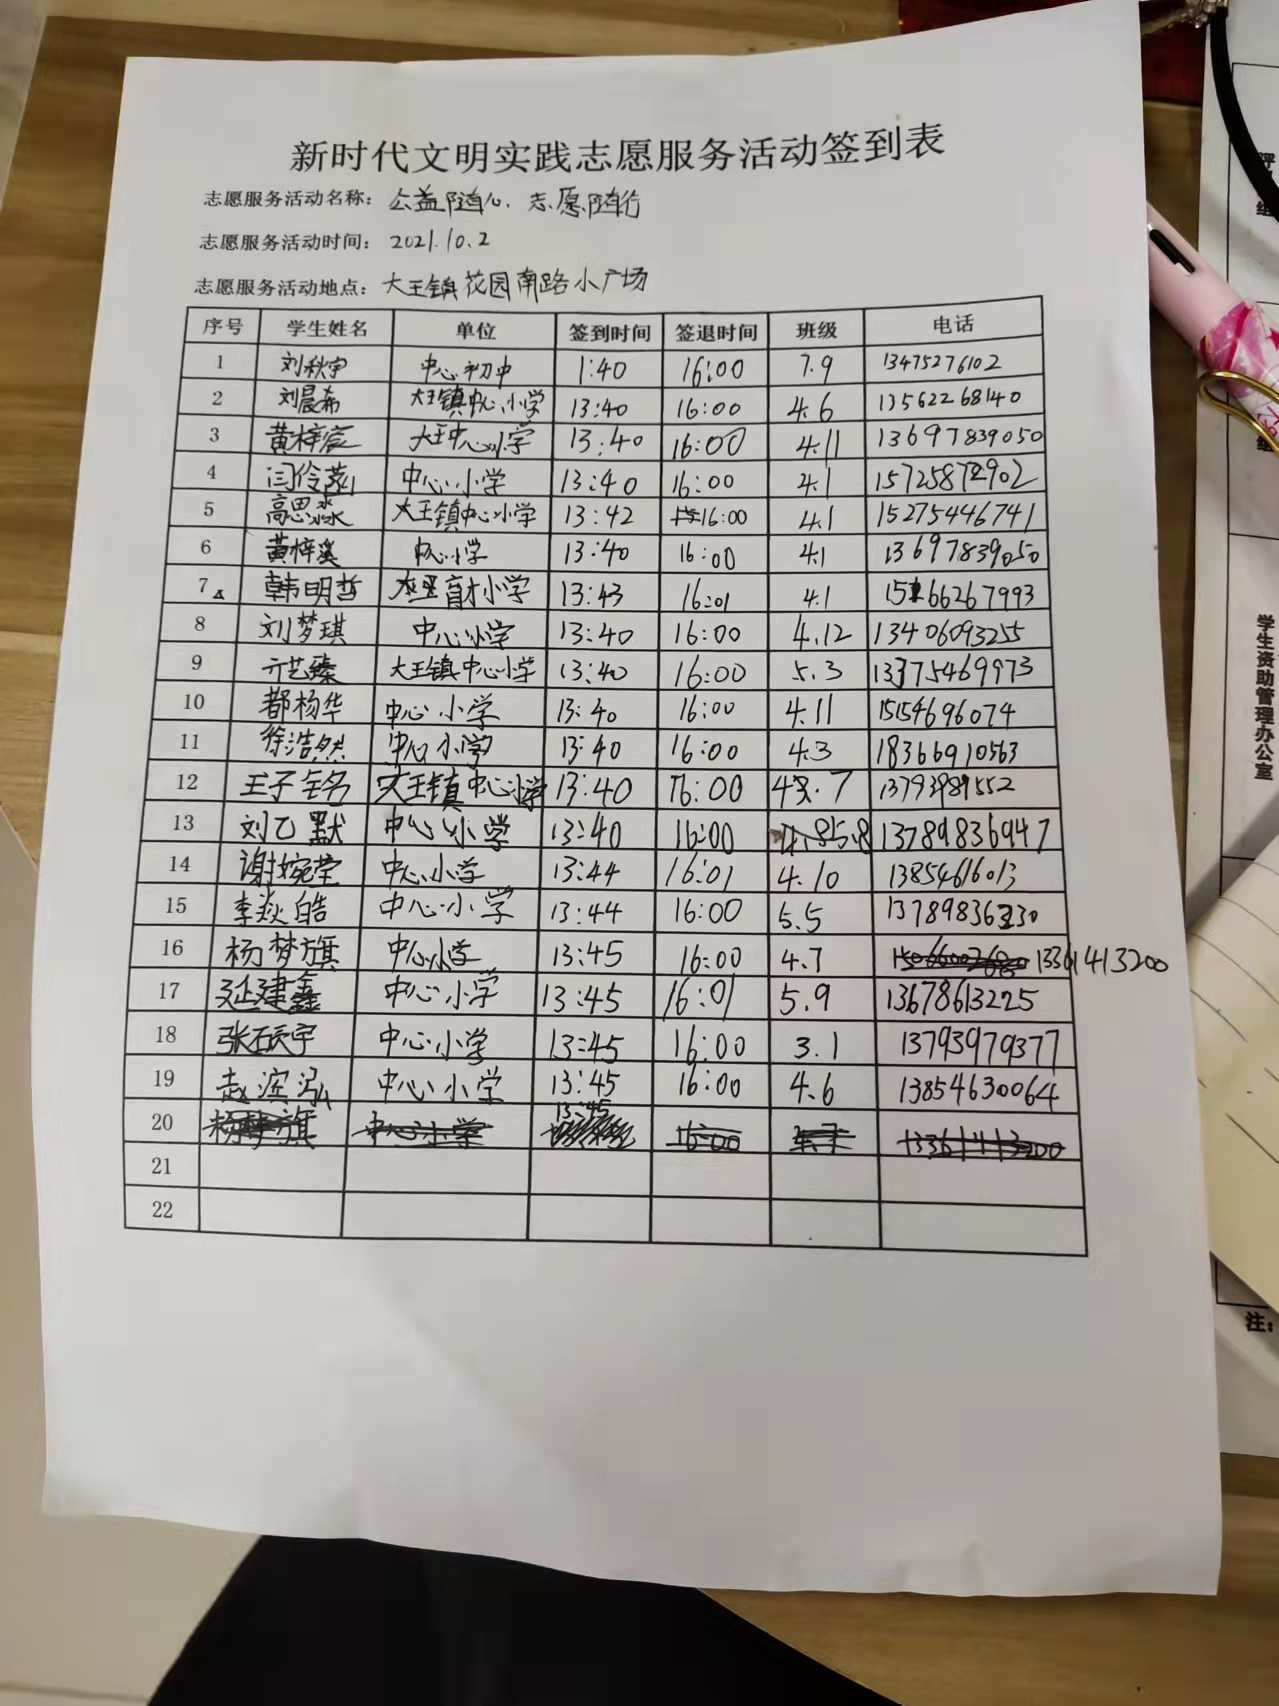 新时代文明实践志愿服务活动签到表
志愿服务活动名称：公益随心．志愿随行
志愿服务活动时间：2021.10.2
志愿服务活动地点：大王镇花园南路小广场
序号 学生姓名 单位 签到时间 签退时间 班级 电话
1 刘秋宇 中心初中 1:40 16:00 7.9 13475276102
2 刘晨希 大王镇中心小学 13:40 16:00 4.6 13562268140
3 黄梓宸 大王中心小学 13:40 16:00 4.11 13697839050
4 闫伶 中心小学 13:40 16:00 4.1 15725872902
5 高思淼 大王镇中心小学 13:42 16:00 4.1 15275446741
6 黄梓溪 中心小学 13:40 16:00 4.1 13697839050
7 韩明哲 育才小学 13:43 16:01 4.1 15266267993
8 刘梦琪 中心小学 13:40 16:00 4.12 13406093255
9 亓艺臻 大王镇中心小学 13:40 16:00 5.3 13375469973
10 都杨华 中心小学 13:40 16:00 4.11 15154696074
11 徐浩然 中心小学 13:40 16:00 4.3 18366910563
12 王子铭 大王镇中心小学 13:40 16:00 4.7 13793989552
13 刘乙默 中心小学 13:40 16:00 5.8 13789836947
14 谢婉莹 中心小学 13:44 16:01 4.10 13854616013
15 李焱皓 中心小学 13:44 16:00 5.5 13789836230
16 杨梦旗 中心小学 13:45 16:00 4.7 13361413200
17 延建鑫 中心小学 13:45 16:01 5.9 13678613225
18 张宇 中心小学 13:45 16:00 3.1 13793979377
19 赵滨泓 中心小学 13:45 16:00 4.6 13854630064
20 杨梦旗 中心小学 13:45 16:00 4.7 13361413200
21
22
学生资助管理办公室
注：